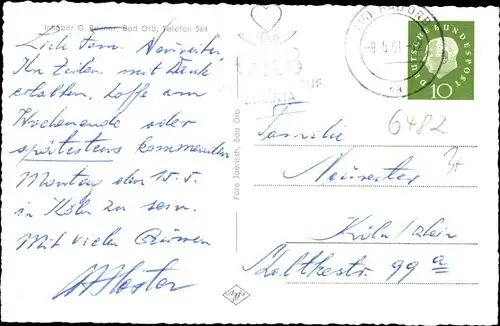 Inhaber G. Bonner, Bad Orb, Telefon 564
Lieb. Fam. Neureiter.
Ihr Zeilen mit Dank
erhalten, hoffe am
Wochenende oder
spätestens kommenden
Montag den 15.5.
in Köln zu sein.
Mit vielen Grüssen
Foto Jaenich, Bad Orb
BAD ORB
-9.5.61
DEUTSCHE BUNDESPOST
10
6482
Familie
Neureiter
Köln/Rhein
Moltkestr. 99 a
Agfa